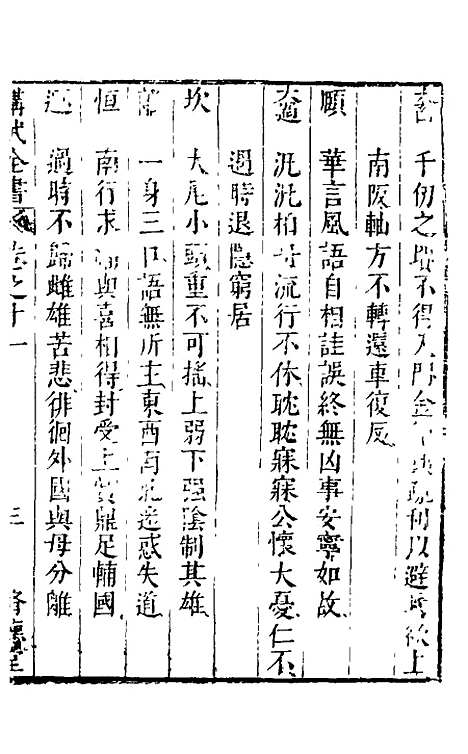 畜 千仞之墻不得入門金 利以避 欲上
南阪軸方不轉還車復反
頤 華言風語自相詿誤終無凶事安寧如故
大過 汎汎柏舟流行不休耿耿寐寐公懷大憂仁不
遇時退隱窮居
坎 大尾小頭重不可搖上弱下强陰制其雄
離 一身三口語無所主東西南北迷惑失道
恒 南行求 與喜相得封受上賞鼎足輔國
遯 過時不歸雌雄苦悲徘徊外國與母分離
講武全書 卷之十一 三